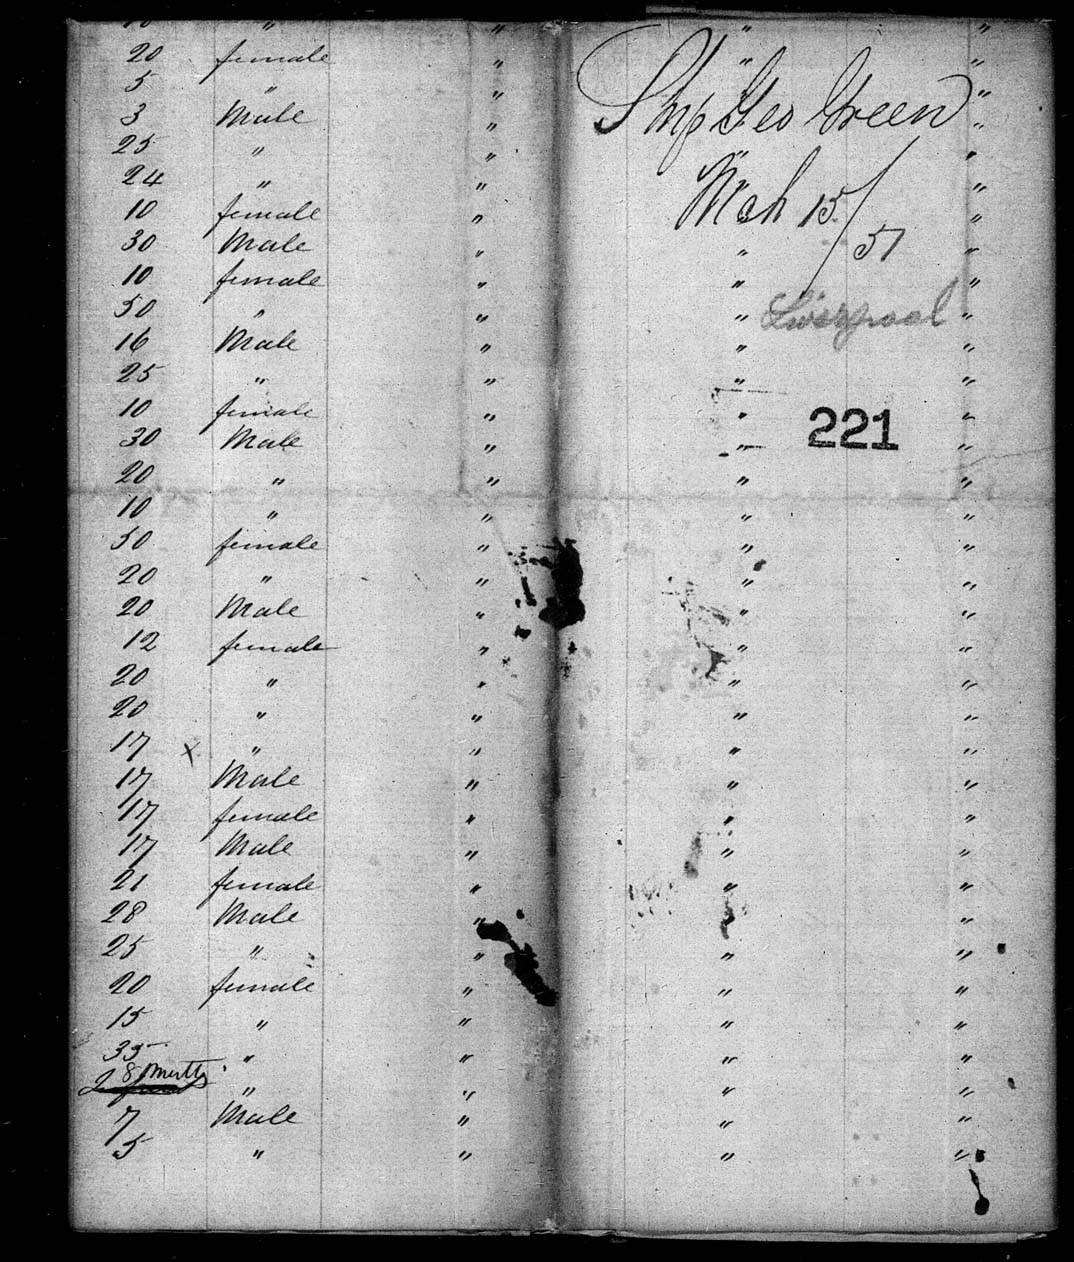 10 " " " "
20 female " " "
5 " " "
3 Male " "
25 " " "
24 " " "
10 female " "
30 Male " " "
10 female " " "
50 " " " "
16 Male " " "
25 " " " "
10 female " " "
30 Male " " "
20 " " " "
10 " " " "
50 female " " "
20 " " " "
20 Male " " "
12 female " " "
20 " " " "
20 " " " "
17 x " " " "
17 Male " " "
17 female " " "
17 Male " " "
21 female " " "
28 Male " " "
25 " " " "
20 female " " "
15 " " " "
35 " " " "
8 " " " "
7 Male " " "
5 " " " "
Ship Geo Green
Mch 15/51
Liverpool
221